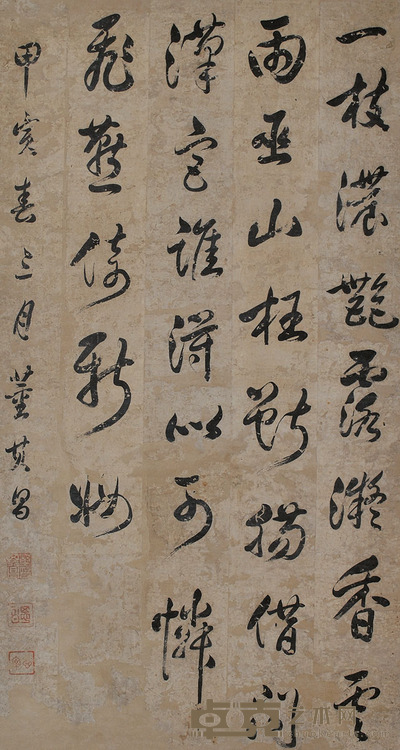 一枝濃艷露凝香雲
雨巫山枉斷腸借問
漢宮誰得似可憐
飛燕倚新妝
甲寅春三月董其昌
卓克艺术网